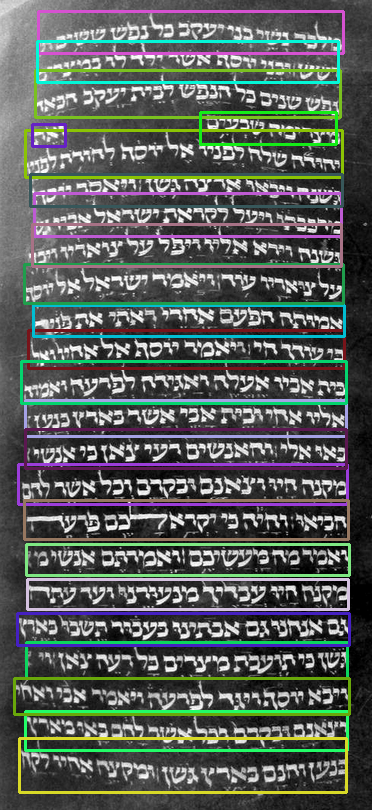 מלבד נשי בני יעקב כל נפש ששים
ושש ובני יוסף אשר ילד לו במצרים
נפש שנים כל הנפש לבית יעקב הבאה
מצרימה שבעים ואת
יהודה שלח לפניו אל יוסף להורת לפניו
גשנה ויבאו ארצה גשן ויאסר יוסף
מרכבתו ויעל לקראת ישראל אביו
גשנה וירא אליו ויפל על צואריו ויבך
על צואריו עוד ויאמר ישראל אל יוסף
אמותה הפעם אחרי ראותי את פניך
כי עודך חי ויאמר יוסף אל אחיו ואל
בית אביו אעלה ואגידה לפרעה ואמרה
אליו אחי ובית אבי אשר בארץ כנען
באו אלי והאנשים רעי צאן כי אנשי
מקנה היו וצאנם ובקרם וכל אשר להם
הביאו והיה כי יקרא לכם פרעה
ואמר מה מעשיכם ואמרתם אנשי
מקנה היו עבדיך מנעורינו ועד עתה
גם אנחנו גם אבתינו בעבור תשבו בארץ
גשן כי תועבת מצרים כל רעה צאן
ויבא יוסף ויגד לפרעה ויאמר אבי ואחי
וצאנם ובקרם וכל אשר להם באו מארץ
כנען והנם בארץ גשן ומקצה אחיו לקח